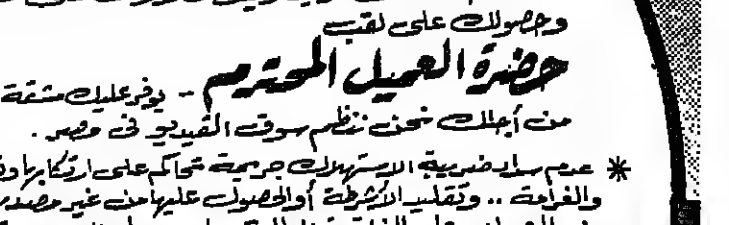 وحصولك على لقب
حضرة العميل المحترم - يوفر عليك مشقة
من أجلك نحن ننظم سوق الفيديو فى مصر .
* عدم سداد ضريبة الاستهلاك جريمة تحاكم على ارتكابها
والغرامة .. وتقليد الأشرطة أو الحصول عليها من غير مصدر